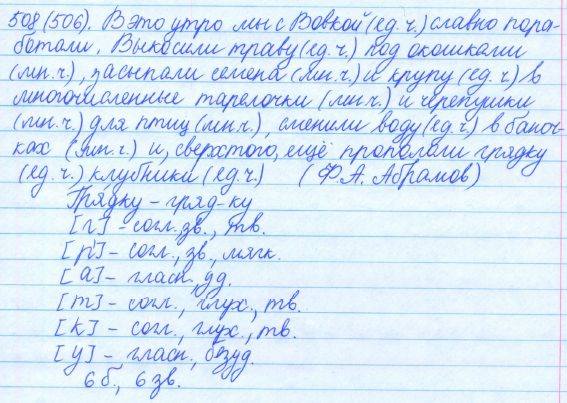 508 (506). В это утро мы с Вовкой (ед.ч.) славно пора-
ботали. Выкосили траву (ед.ч.) под окошками
(мн.ч.), засыпали семена (мн.ч.) и крупу (ед.ч.) в
многочисленные тарелочки (мн.ч.) и черепушки
(мн.ч.) для птиц (мн.ч.), сменили воду (ед.ч.) в баноч-
ках (мн.ч.) и, сверх того, ещё пропололи грядку
(ед.ч.) клубники (ед.ч.) (Ф.А. Абрамов)
Грядку – гряд-ку
[г] – согл., зв., тв.
[р'] – согл., зв., мягк.
[а] – гласн., уд.
[т] – согл., глух., тв.
[к] – согл., глух., тв.
[у] – гласн., безуд.
6 б., 6 зв.